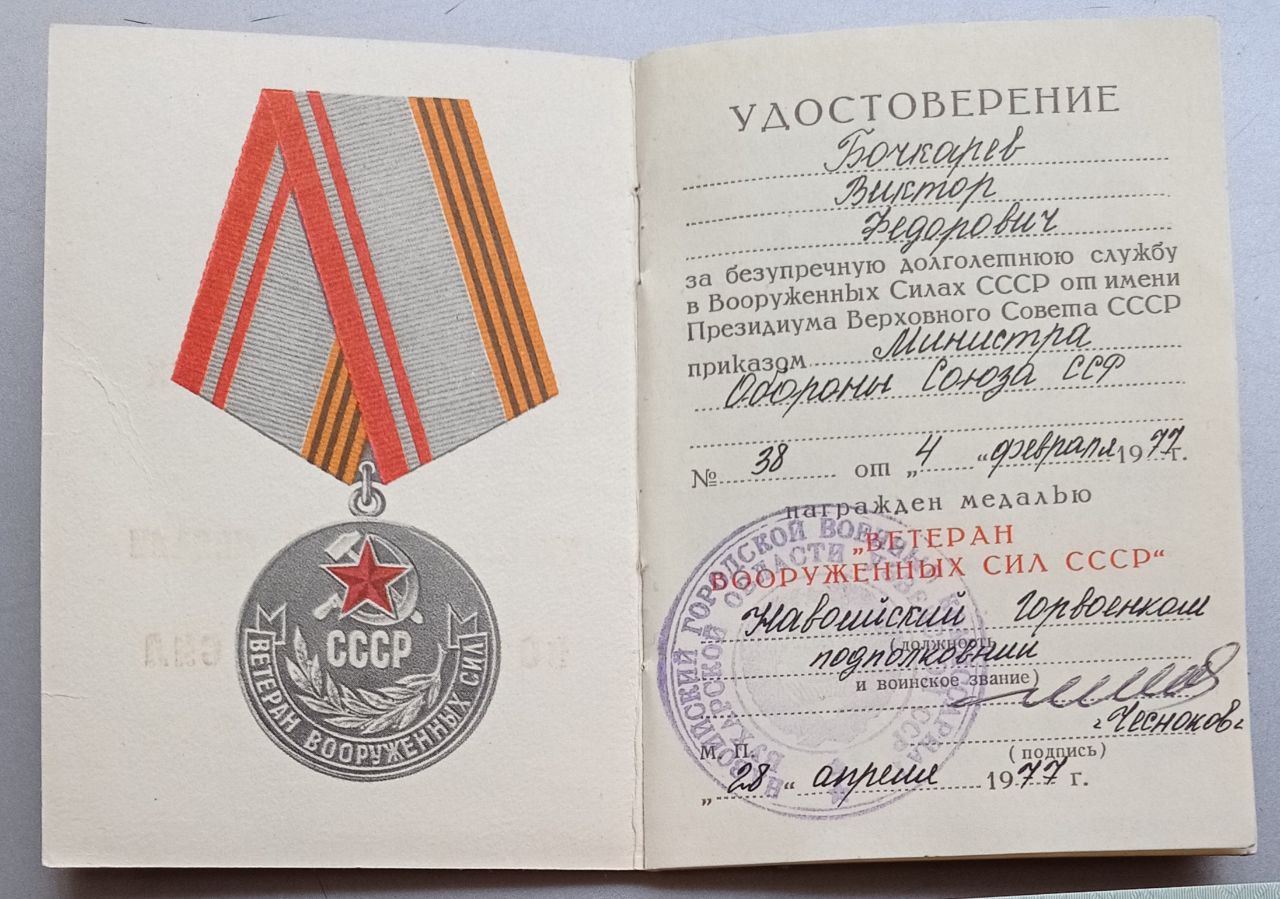 СССР
ВЕТЕРАН ВООРУЖЕННЫХ СИЛ
УДОСТОВЕРЕНИЕ
Бочкарев
Виктор
Федорович
за безупречную долголетнюю службу
в Вооруженных Силах СССР от имени
Президиума Верховного Совета СССР
приказом Министра
Обороны Союза ССР
№ 38 от „4“ февраля 1977 г.
награжден медалью
„ВЕТЕРАН
ВООРУЖЕННЫХ СИЛ СССР“
Навоийский горвоенком
(должность
подполковник
и воинское звание)
Чесноков
М. П. (подпись)
„28“ апреля 1977 г.
НАВОИЙСКИЙ ГОРОДСКОЙ ВОЕННЫЙ КОМИССАРИАТ
БУХАРСКОЙ ОБЛАСТИ ССР